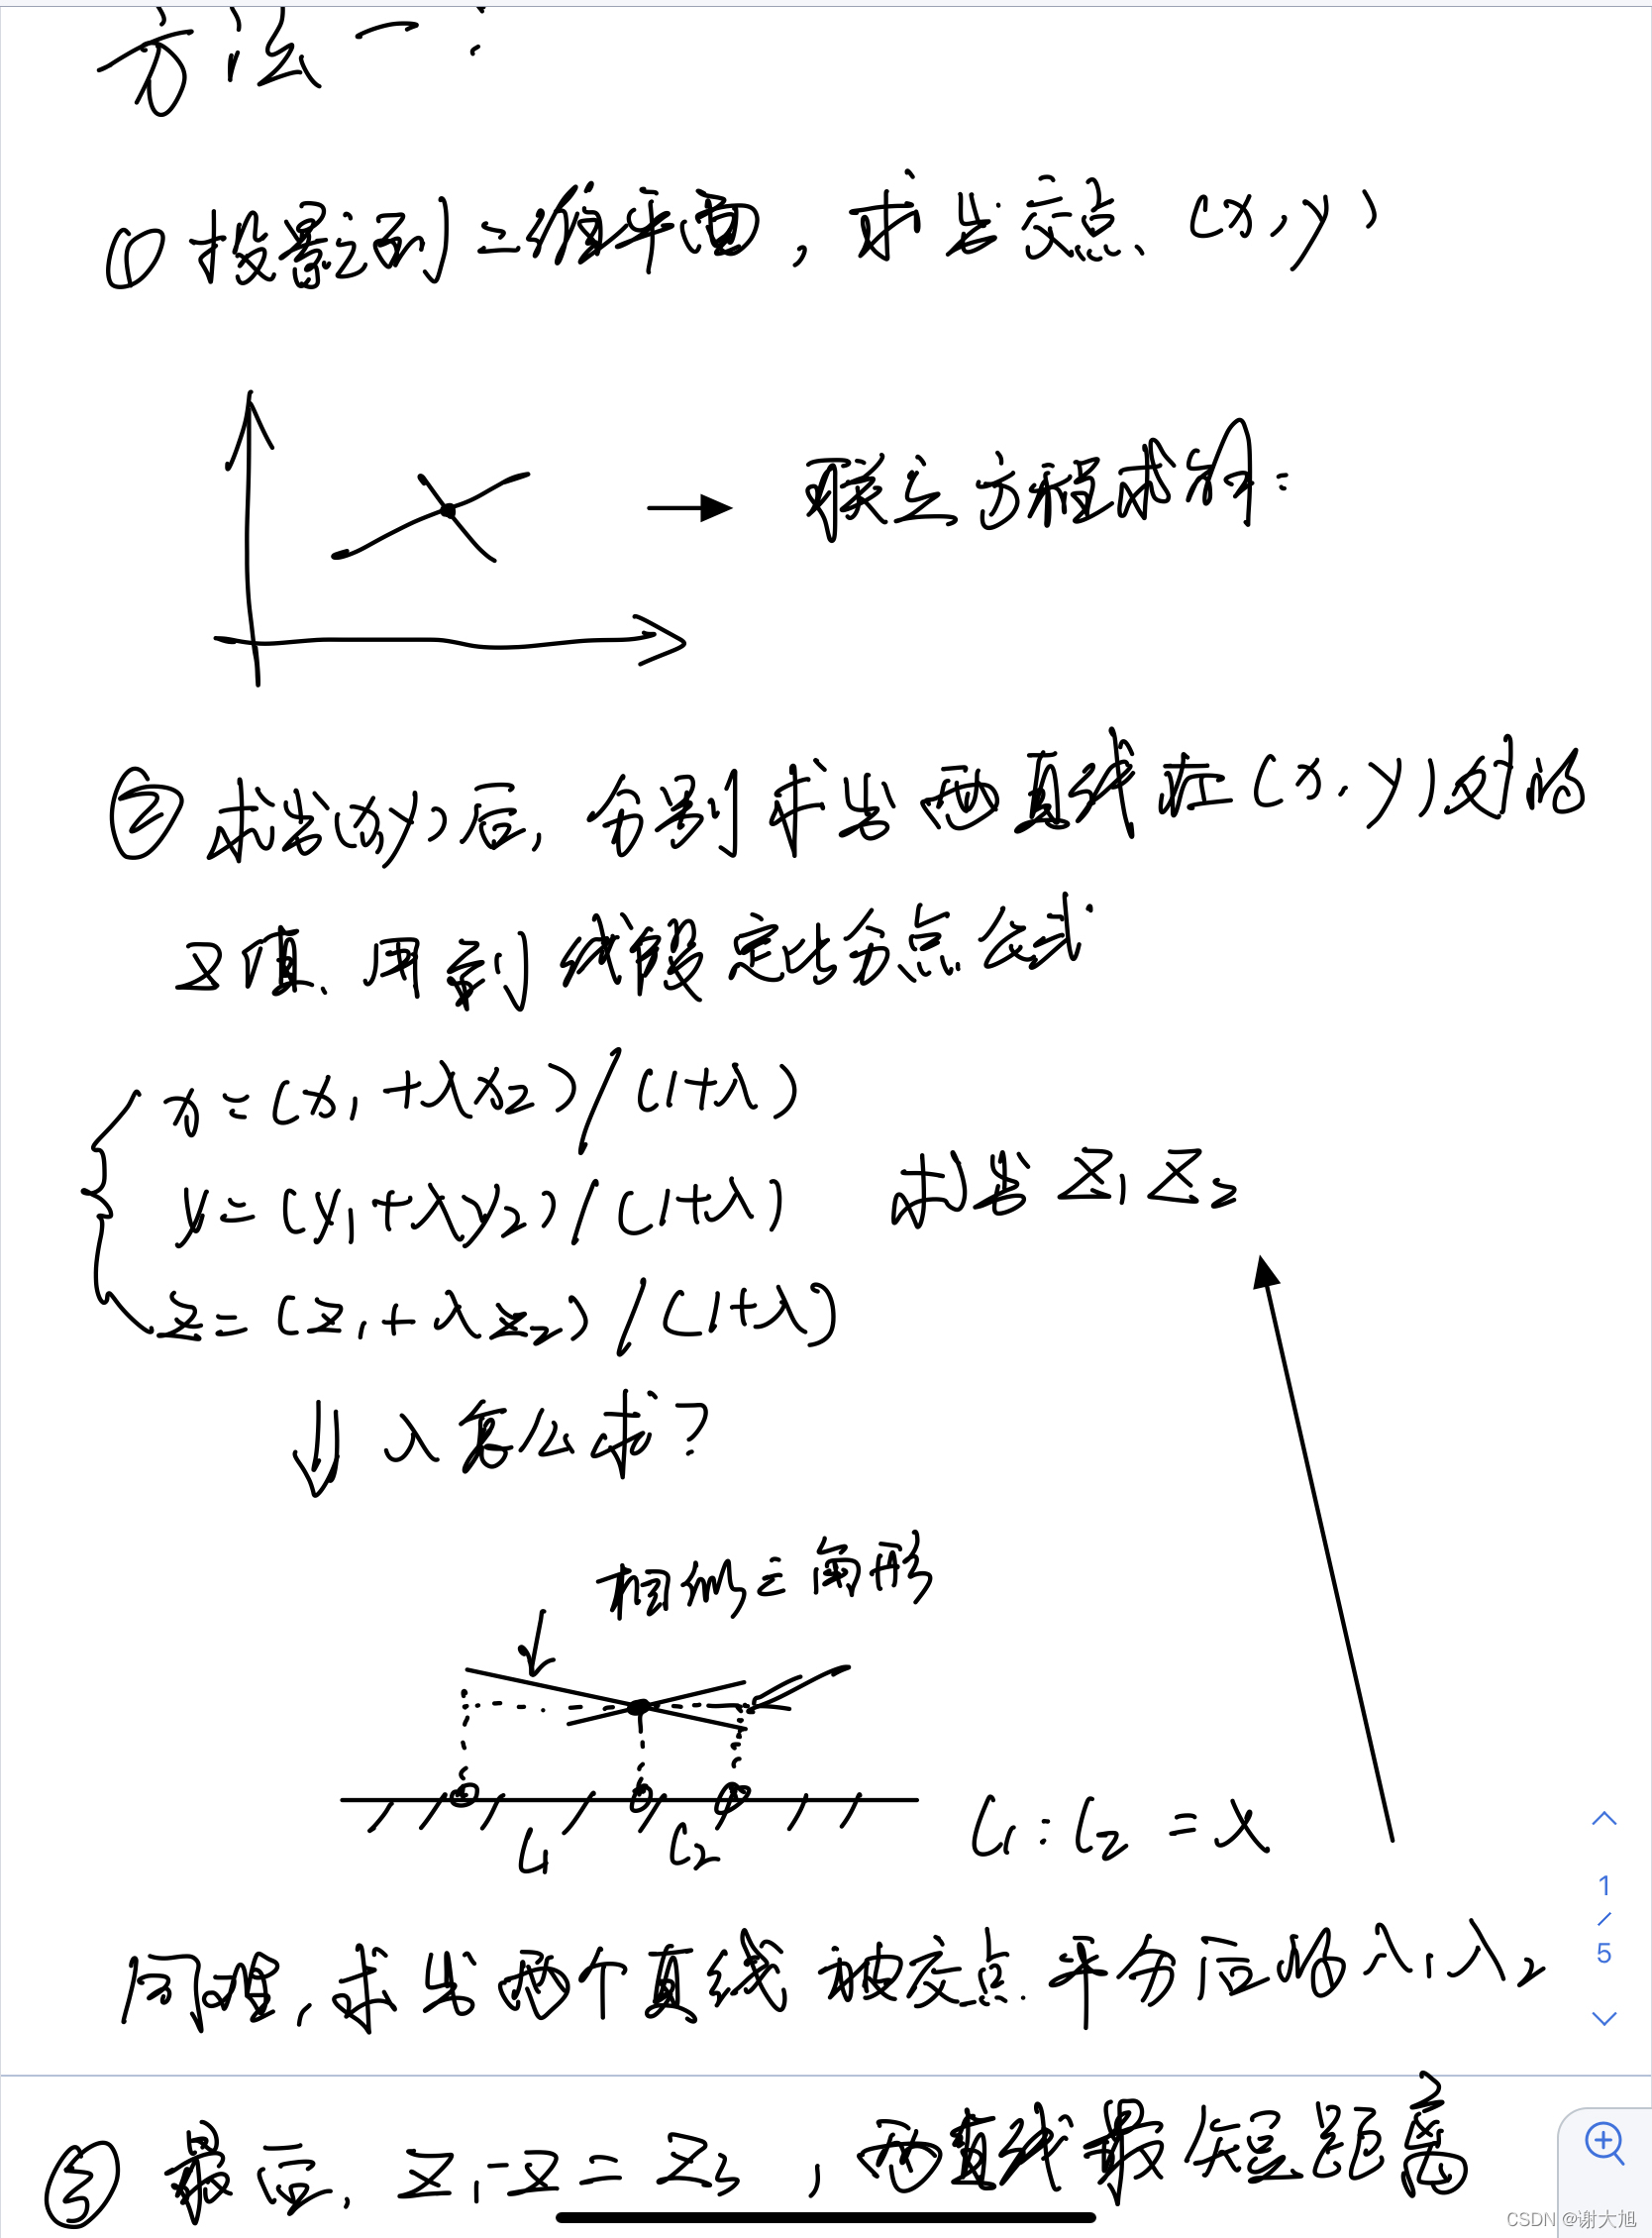 方法一:
① 投影到二维平面，求出交点 (x,y)
联立方程求解:
② 求出(x,y)后，分别求出两直线在(x,y)处的
Z值. 用到线段定比分点公式
x=(x₁+λx₂)/(1+λ)
y=(y₁+λy₂)/(1+λ) 求出 Z₁ Z₂
z=(z₁+λz₂)/(1+λ)
λ怎么求?
相似三角形
L₁ L₂ L₁:L₂=λ
同理,求出两个直线被交点平分后的λ₁λ₂
③ 最后, Z₁-Z=Z₃,两直线最短距离
1
/
5
CSDN @谢大旭